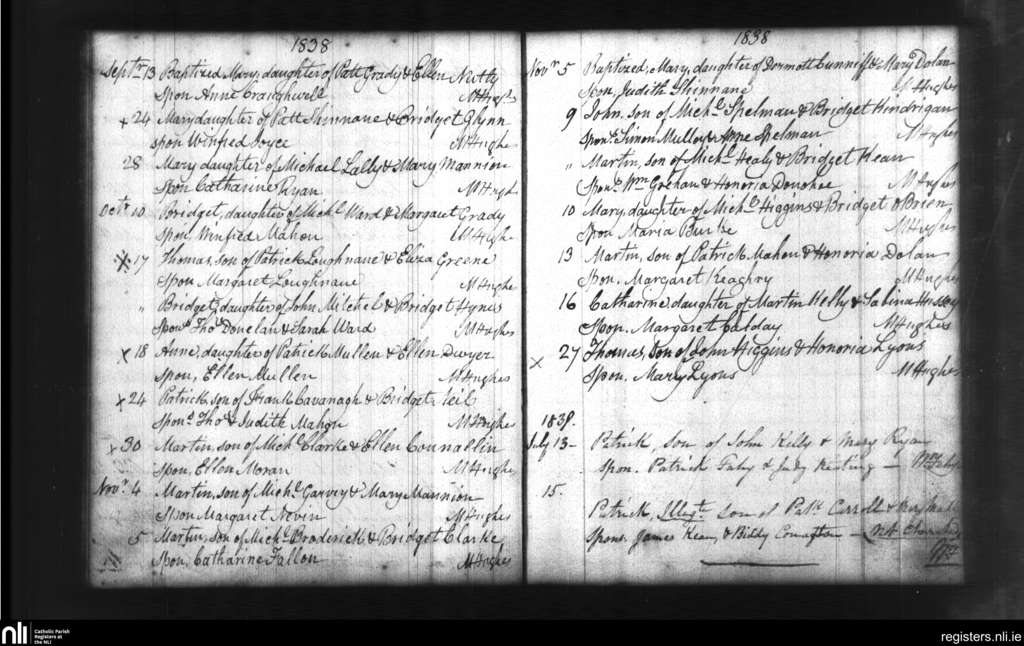 1838
Septr 13 Baptized Mary, daughter of Patt Grady & Ellen Netty
Spon Anne Craughwell MHughes
x 24 Mary daughter of Patt Shinnane & Bridget Glynn
spon Winfred Joyce MHughe
28 Mary daughter of Michael Lally & Mary Mannion
Spon Catharine Ryan MHugh
Octr 10 Bridget, daughter of Michl Ward & Margaret Grady
Spon, Winfred Mahon MHughe
x 17 Thomas, son of Patrick Loughnane & Eliza Greene
Spon Margaret Loughnane MHughe
" Bridget, daughter of John Mitchel & Bridget Hynes
Spons Thos Donelan & Sarah Ward MHughes
x 18 Anne, daughter of Patrick Mullen & Ellen Dwyer
Spon, Ellen Mullen MHughes
x 24 Patrick, son of Frank Cavanagh & Bridget Neil
Spons Thos & Judith Mahon MHughe
x 30 Martin, son of Michl Clarke & Ellen Connallin
Spon, Ellen Moran MHughe
Novr 4 Martin, son of Michl Garvey & Mary Mannion
Spon Margaret Nevin MHughes
5 Martin, son of Michl Broderick & Bridget Clarke
Spon, Catharine Fallon MHughes
1838
Novr 5 Baptized, Mary, daughter of Dermott Cunniff & Mary Dolan
Spon, Judith Shinnane MHughes
9 John, son of Michl Spelman & Bridget Hindrigan
Spons. Simon Mulloy & Anne Spelman MHughes
" Martin, son of Michl Healy & Bridget Kean
Spons Wm Grehan & Honoria Donohoe MHughes
10 Mary, daughter of Michl Higgins & Bridget OBrien
Spon Maria Burke MHughes
13 Martin, son of Patrick Mahon & Honoria Dolan
Spon. Margaret Keaghry MHughes
16 Catharine, daughter of Martin Kelly & Sabina Hussey
Spon. Margaret Calday MHughes
x 27 Thomas, Son of John Higgins & Honoria Lyons
Spon. Mary Lyons MHughe
1839.
July 13- Patrick, son of John Kelly & Mary Ryan
spon. Patrick Fahy & Judy Keating —
15.
Patrick, Illegt. son of Patk Carroll & Mary
Spons. James Kean, & Biddy Conaghton —
nli Catholic Parish
Registers at
the NLI
registers.nli.ie